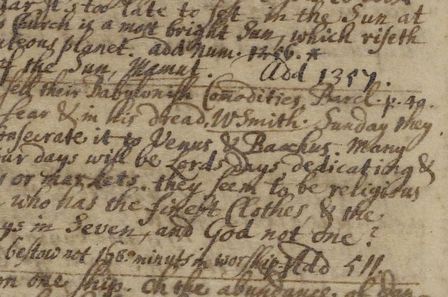 ar it's too late to set in the Sun at
s Church is a most bright Sun, which riseth
hteous planet. add num. 1256. *
of the Sun. Mamut. Add 1357.
sell their Babylonish Comodities, Barcl. p. 49.
fear & in his dread. W Smith. Sunday they
onsecrate it to Venus & Bacchus. Many
our days will be Lords Days, dedicating &
s or markets. they seem to be religious
who has the finest Clothes & the
ys in Seven, and God not one?
bestow not 160 minuts in worship. Add 511.
m one ship. Oh the abundance of